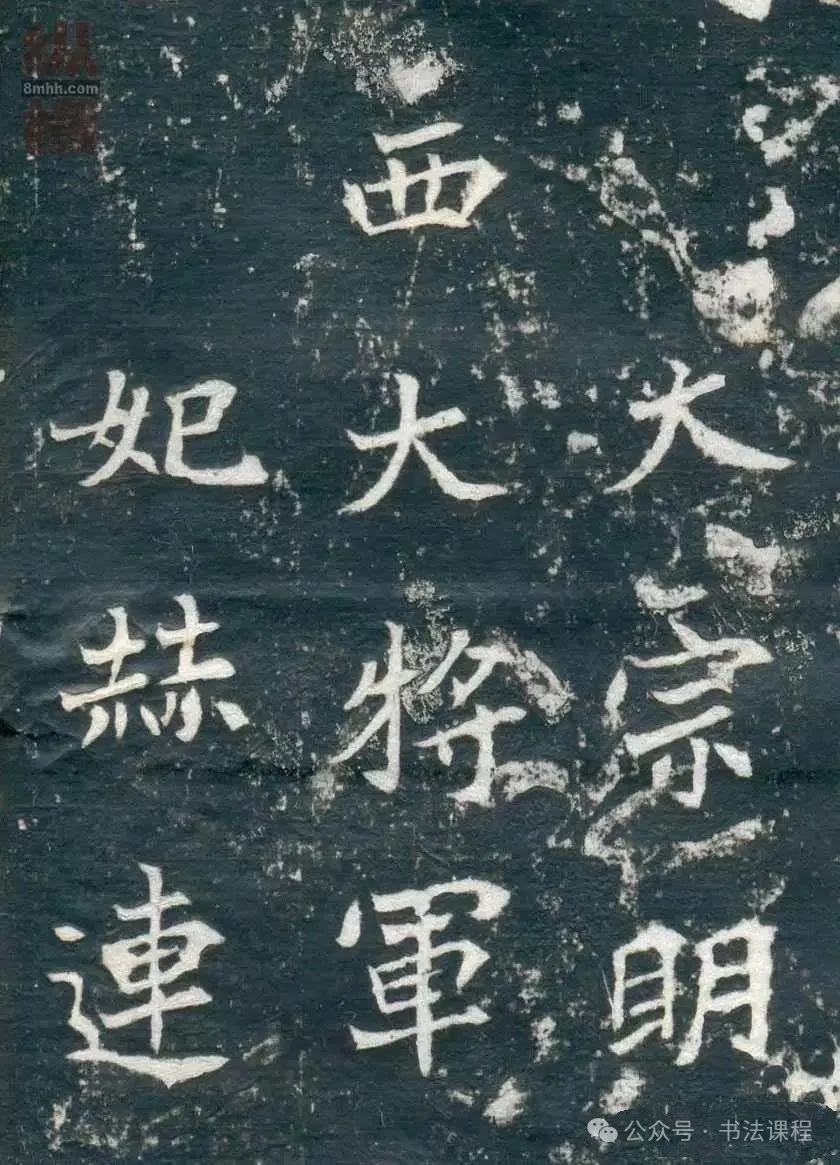 大宗明
西大將軍
妃赫連
纵横
8mhh.com
公众号·书法课程